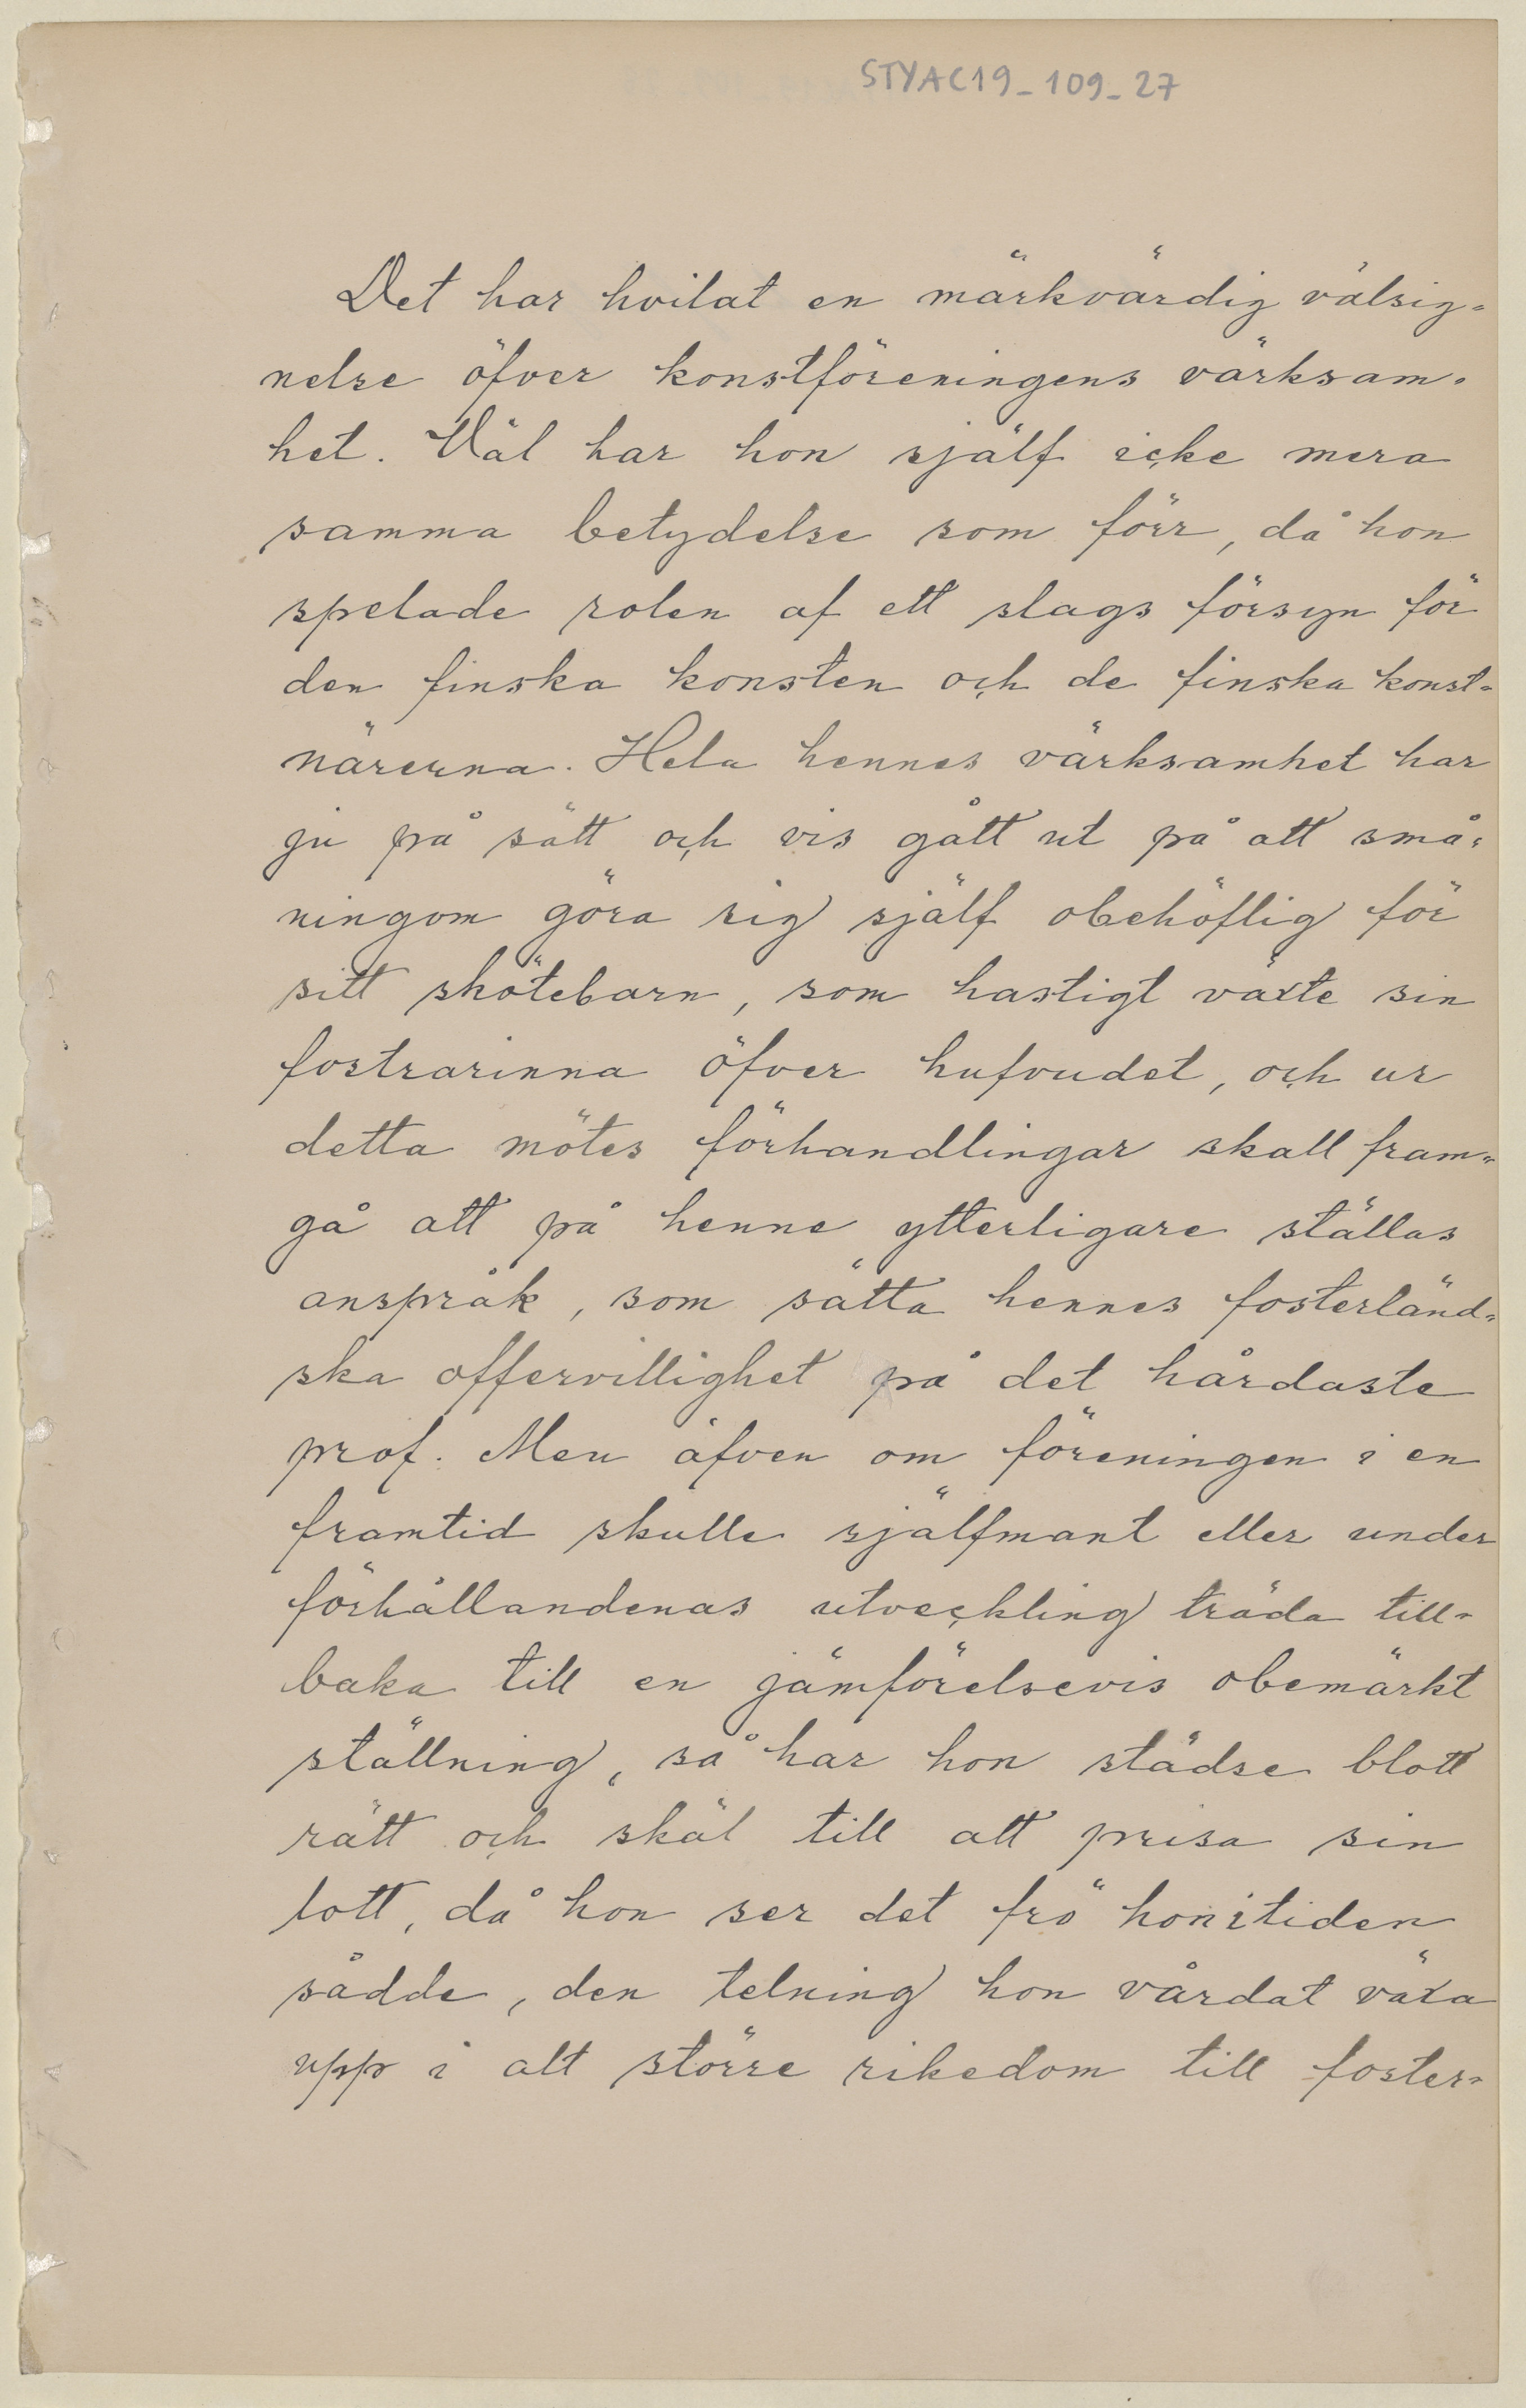 STYAC19_109_27
Det har hvilat en märkvärdig välsig-
nelse öfver konstföreningens värksam-
het. Väl har hon själf icke mera
samma betydelse som förr, då hon
spelade rolen af ett slags försyn för
den finska konsten och de finska konst-
närerna. Hela hennes värksamhet har
ju på sätt och vis gått ut på att små-
ningom göra sig själf obehöflig för
sitt skötebarn, som hastigt växte sin
fostrarinna öfver hufvudet, och ur
detta mötes förhandlingar skall fram-
gå att på henne ytterligare ställas
anspråk, som sätta hennes fosterländ-
ska offervillighet på det hårdaste
prof. Men äfven om föreningen i en
framtid skulle själfmant eller under
förhållandenas utveckling träda till-
baka till en jämförelsevis obemärkt
ställning, så har hon städse blott
rätt och skäl till att prisa sin
lott, då hon ser det frö hon i tiden
sådde, den telning hon vårdat växa
upp i alt större rikedom till foster-